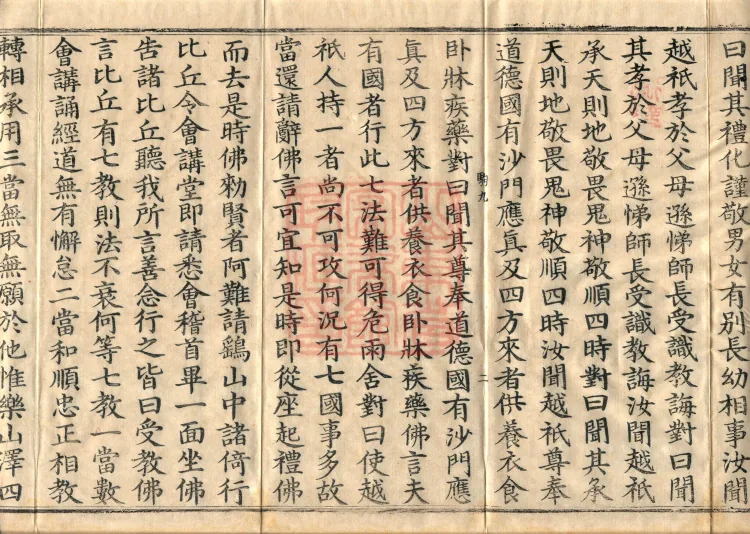 曰聞其禮化謹敬男女有別長幼相事汝聞
越祇孝於父母遜悌師長受識教誨對曰聞
其孝於父母遜悌師長受識教誨汝聞越祇
承天則地敬畏鬼神敬順四時對曰聞其承
天則地敬畏鬼神敬順四時汝聞越祇尊奉
道德國有沙門應真及四方來者供養衣食
卧牀疾藥對曰聞其尊奉道德國有沙門應
真及四方來者供養衣食卧牀疾藥佛言夫
有國者行此七法難可得危雨舍對曰使越
祇人持一者尚不可攻何況有七國事多故
當還請辭佛言可宜知是時即從座起禮佛
而去是時佛勑賢者阿難請鷂山中諸倚行
比丘令會講堂即請悉會稽首畢一面坐佛
告諸比丘聽我所言善念行之皆曰受教佛
言比丘有七教則法不衰何等七教一當數
會講誦經道無有懈怠二當和順忠正相教
轉相承用三當無取無願於他惟樂山澤四